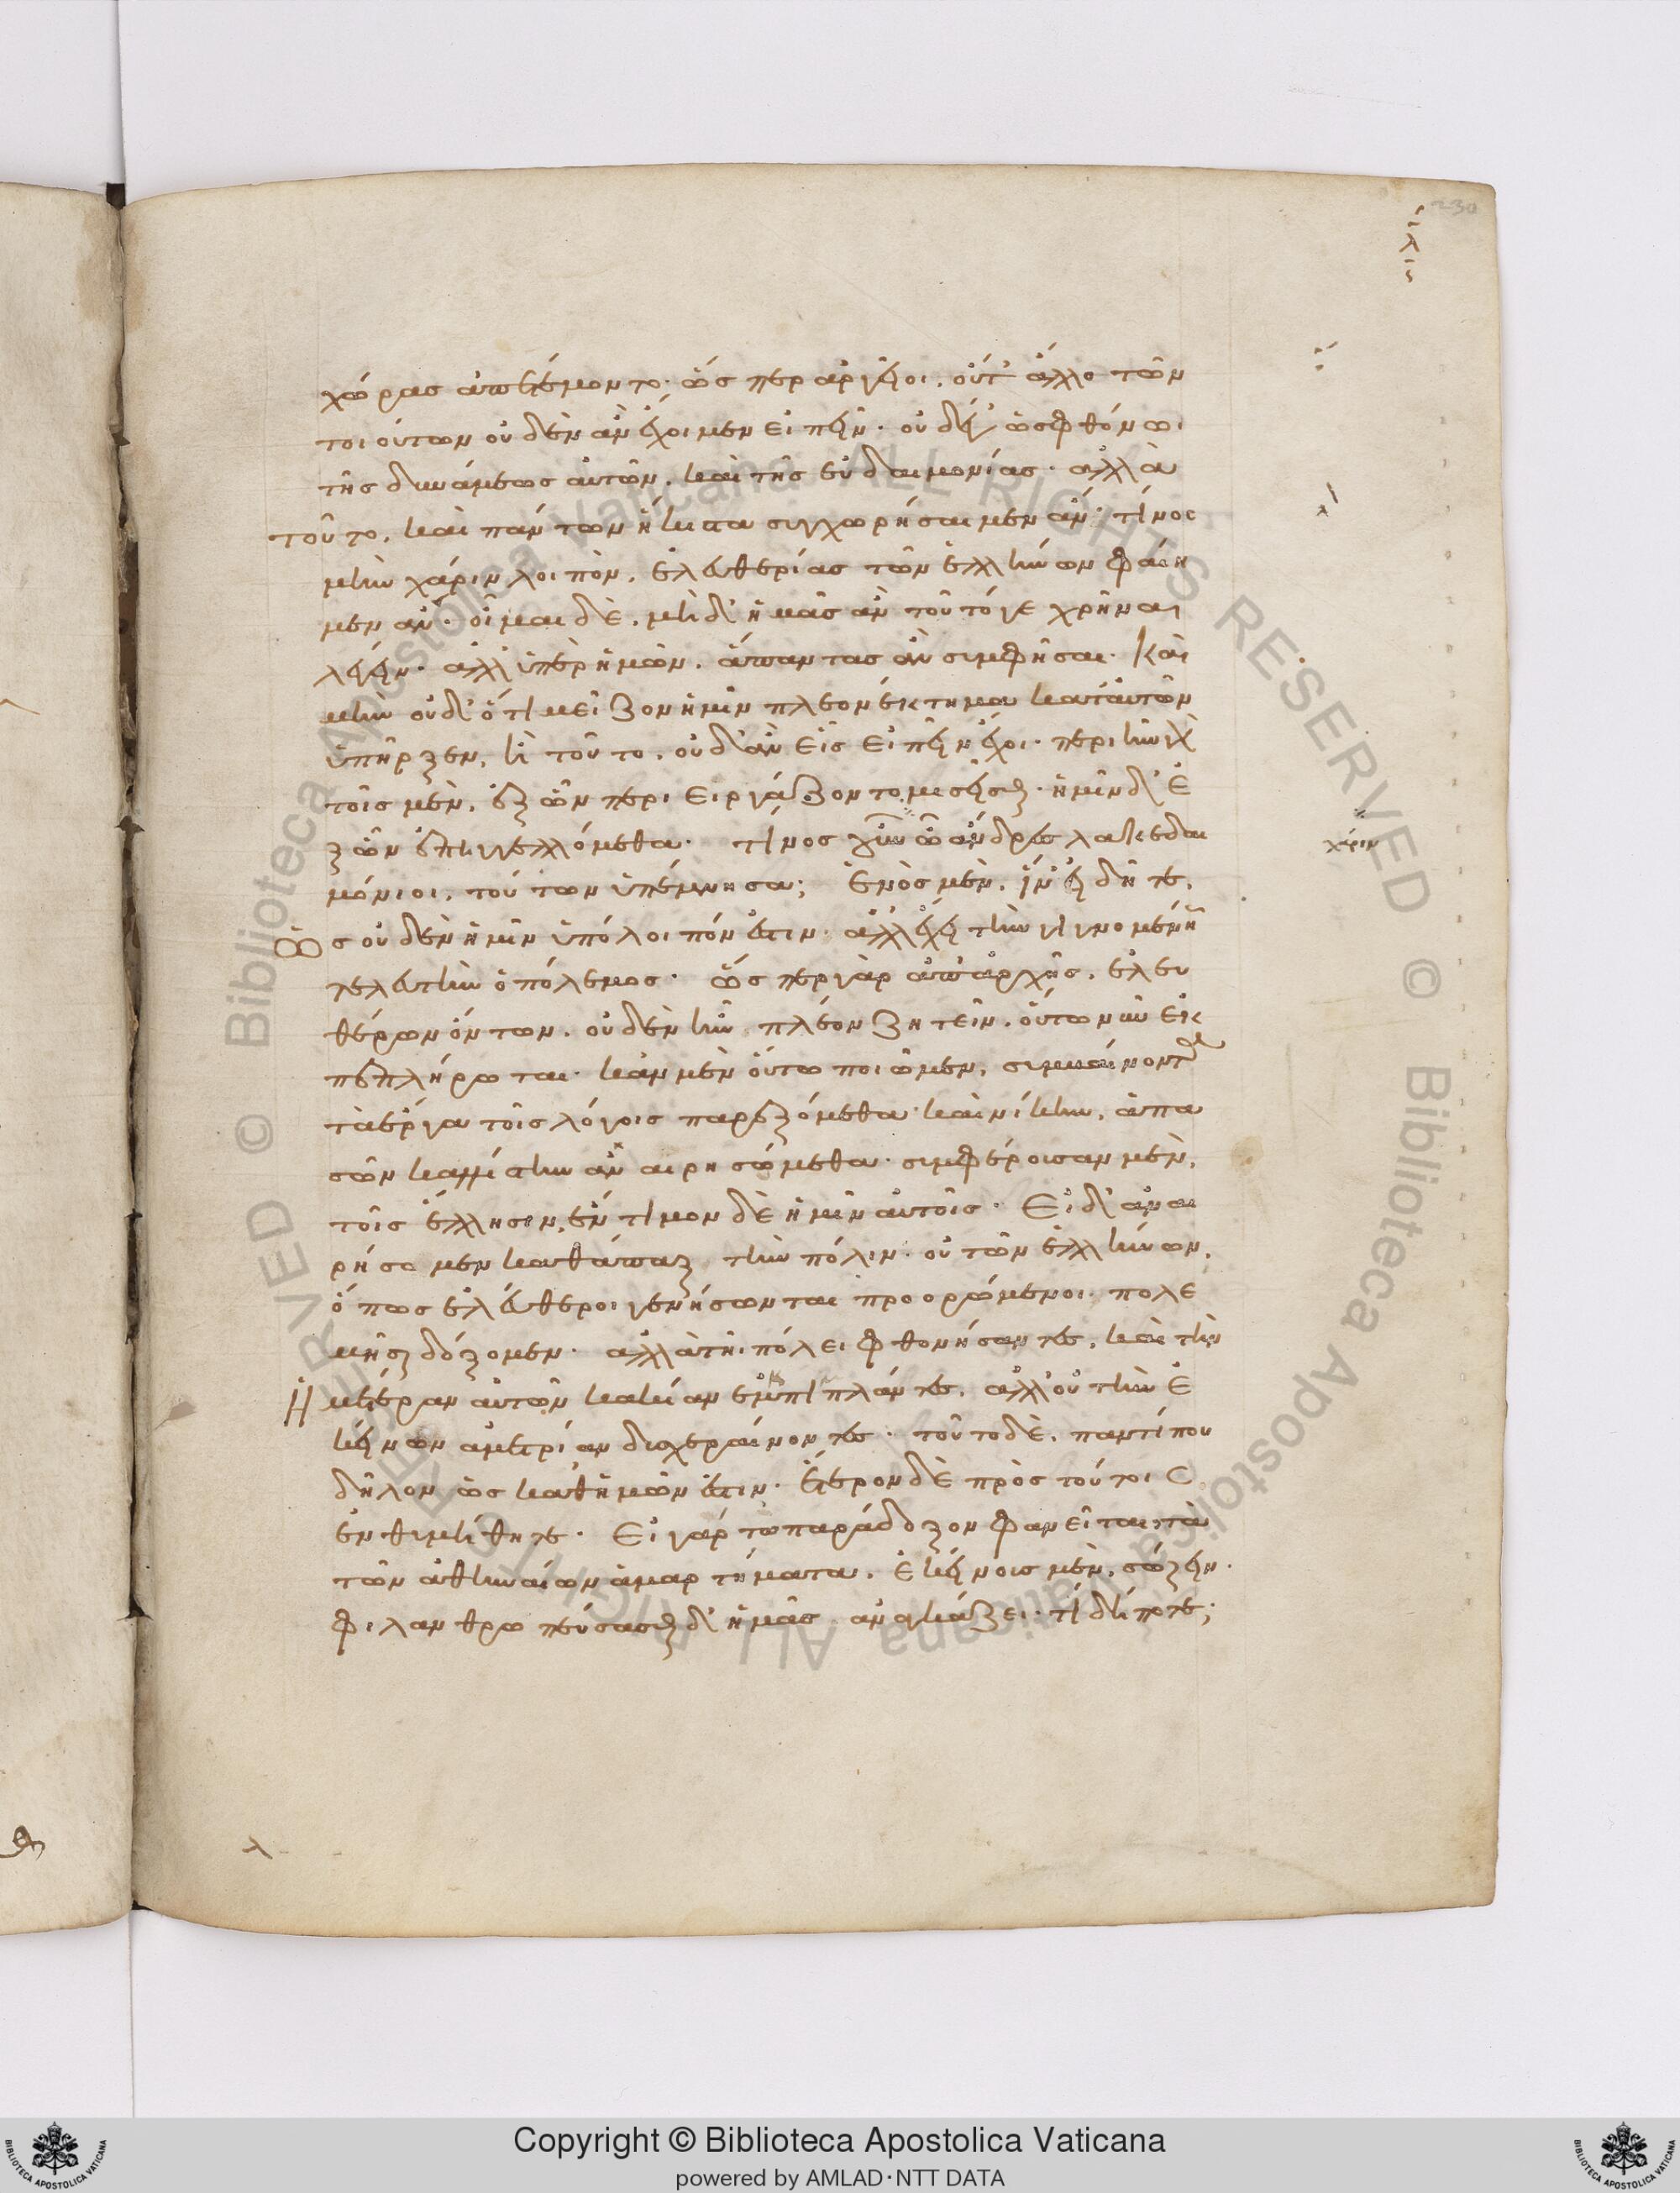 χώρας ἀπετέμοντο ὥσπερ ἀργεῖοι. οὔτ' ἄλλο τῶν
τοιούτων οὐδὲν ἂν ἔχοιμεν εἰπεῖν. οὐδέ γ' ὡς φθόνωι
τῆς δυνάμεως αὐτῶν, καὶ τῆς εὐδαιμονίας. ἀλλὰ
τοῦτο, καὶ πάντων ἥκιστα συγχωρήσαιμεν ἄν. τίνος
μὴν χάριν λοιπὸν, ἐλευθερίας τῶν ἑλλήνων φαίη
μεν ἄν. οἶμαι δὲ, μὴ δ' ἡμᾶς ἂν τοῦτό γε χρῆναι
λέγειν. ἀλλ' ὑπὲρ ἡμῶν, ἅπαντας ἂν συμφῆσαι. Καὶ
μὴν οὐδ' ὅτι μεῖζον ἡμῖν πλεονέκτημα κατ' αὐτῶν
ὑπῆρξεν, ἢ τοῦτο, οὐδ' ἂν εἷς εἰπεῖν ἔχοι. περιῆν γὰρ
τοῖς μὲν, ἐξ ὧν περιειργάζοντο μισεῖσθαι. ἡμῖν δ' ἐ
ξ ὧν ἐπηγγελλόμεθα. τίνος οὖν ὦ ἄνδρες λακεδαι
μόνιοι, τούτων ὑπέμνησα; ἑνὸς μὲν, ἵν' εἰδῆτε,
ὡς οὐδὲν ἡμῖν ὑπόλοιπόν ἐστιν. ἀλλ' ἔχει τὴν γιγνομένην
τελευτὴν ὁ πόλεμος. ὥσπερ γὰρ ἀπ' ἀρχῆς, ἐλευ
θέρων ὄντων, οὐδὲν ἦν πλέον ζητεῖν, οὕτω νῦν ἐκ
πεπλήρωται. κἂν μὲν οὕτω ποιῶμεν, συμβαίνοντα
τὰ ἔργα τοῖς λόγοις παρεξόμεθα. καὶ νίκην, ἁπα
σῶν καλλίστην ἀναιρησώμεθα. συμφέρουσαν μὲν,
τοῖς ἕλλησιν, ἔντιμον δὲ ἡμῖν αὐτοῖς. Εἰ δ' ἀναι
ρήσομεν καθάπαξ τὴν πόλιν. οὐ τῶν ἑλλήνων,
ὅπως ἐλεύθεροι γενήσωνται προορώμενοι. πολε
μῆσαι δόξομεν. ἀλλὰ τῆι πόλει φθονήσαντες, καὶ τὴν
ἡμετέραν αὐτῶν κακίαν ἐμπιπλάντες, ἀλλ' οὐ τὴν ἐ
κείνων ἀμετρίαν δυσχεραίνοντες. τοῦτο δὲ, παντί που
δῆλον ὡς καθ' ἡμῶν ἐστιν. ἕτερον δὲ πρὸς τούτοις
ἐνθυμήθητε. Εἰ γάρ τω παράδοξον φανεῖται, τὰ
τῶν ἀθηναίων ἁμαρτήματα, ἐκείνοις μὲν, σώζειν.
φιλανθρωπεύσασθαι δ' ἡμᾶς ἀναγκάζει. τί δήποτε;
χάριν